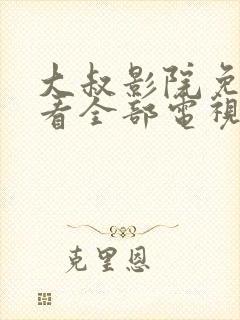 大叔影院免
看全部電視
克里恩